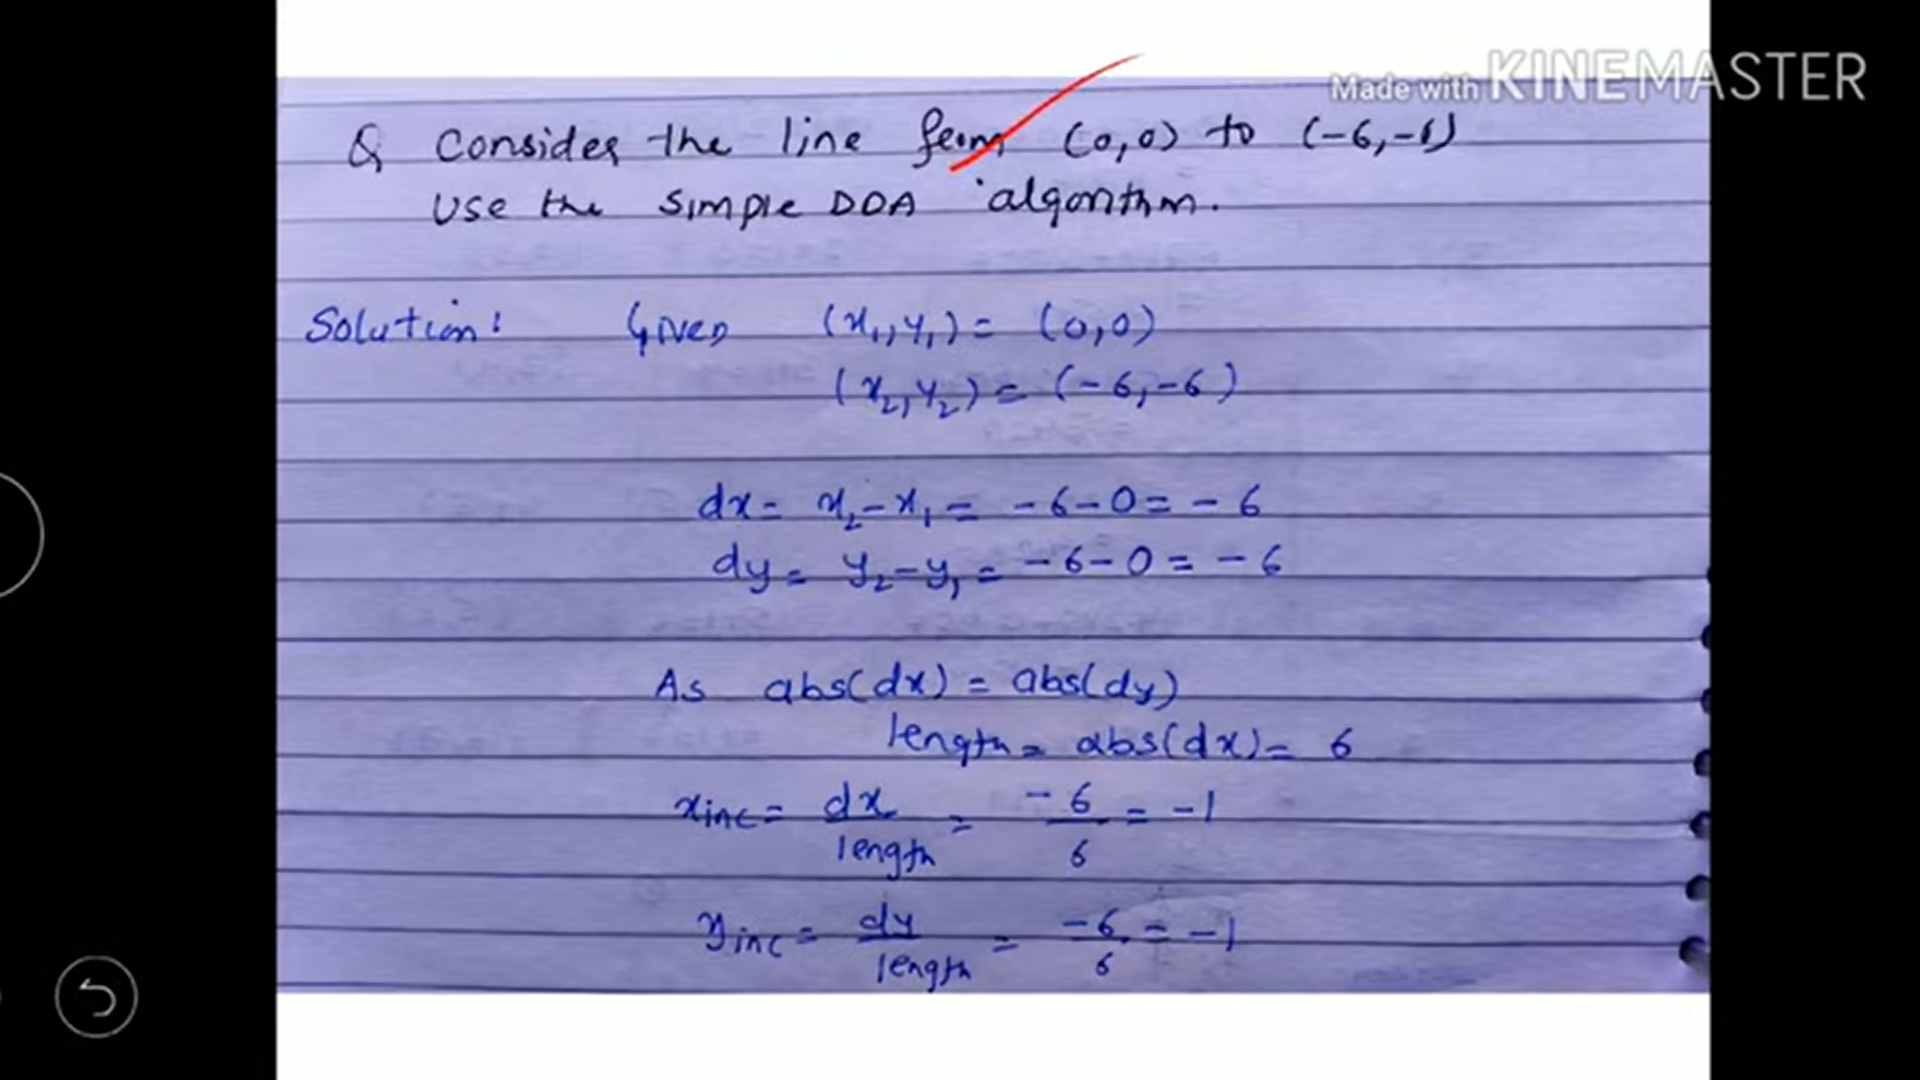 Made with KINEMASTER
Q Consider the line from (0,0) to (-6,-6)
Use the simple DDA algorithm.
Solution: Given (x1,y1) = (0,0)
(x2,y2) = (-6,-6)
dx = x2-x1 = -6-0 = -6
dy = y2-y1 = -6-0 = -6
As abs(dx) = abs(dy)
length = abs(dx) = 6
xinc = dx/length = -6/6 = -1
yinc = dy/length = -6/6 = -1